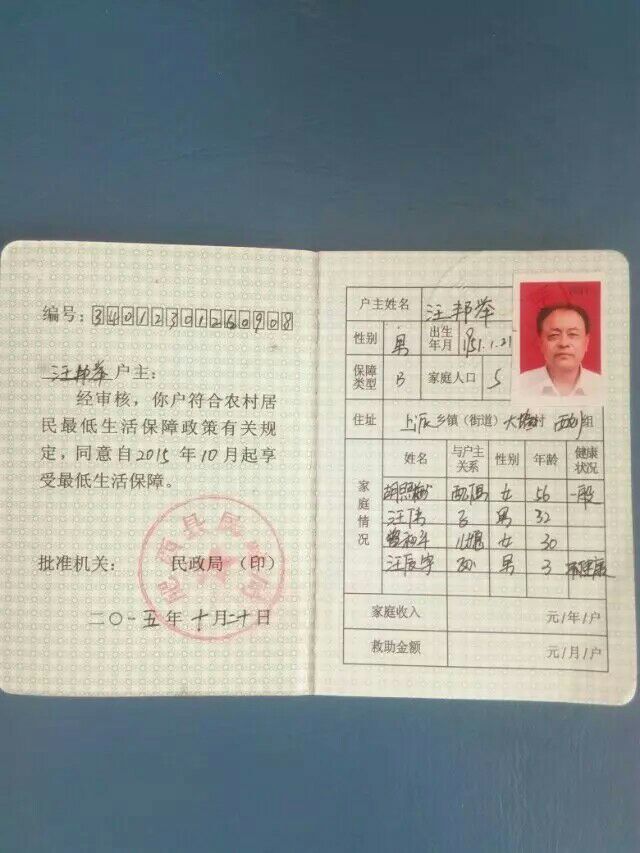 编号：34012301260908
汪邦举 户主：
经审核，你户符合农村居
民最低生活保障政策有关规
定，同意自2015年10月起享
受最低生活保障。
批准机关： 民政局 （印）
肥西县民政局
二〇一五年十月二十日
户主姓名 汪邦举
性别 男 出生年月 1951.1.21
保障类型 B 家庭人口 5
住址 上派乡镇（街道） 村 组
家庭情况
姓名 与户主关系 性别 年龄 健康状况
配偶 女 56 一般
汪伟 子 男 32
儿媳 女 30
汪辰宇 孙 男 3
家庭收入 元/年/户
救助金额 元/月/户